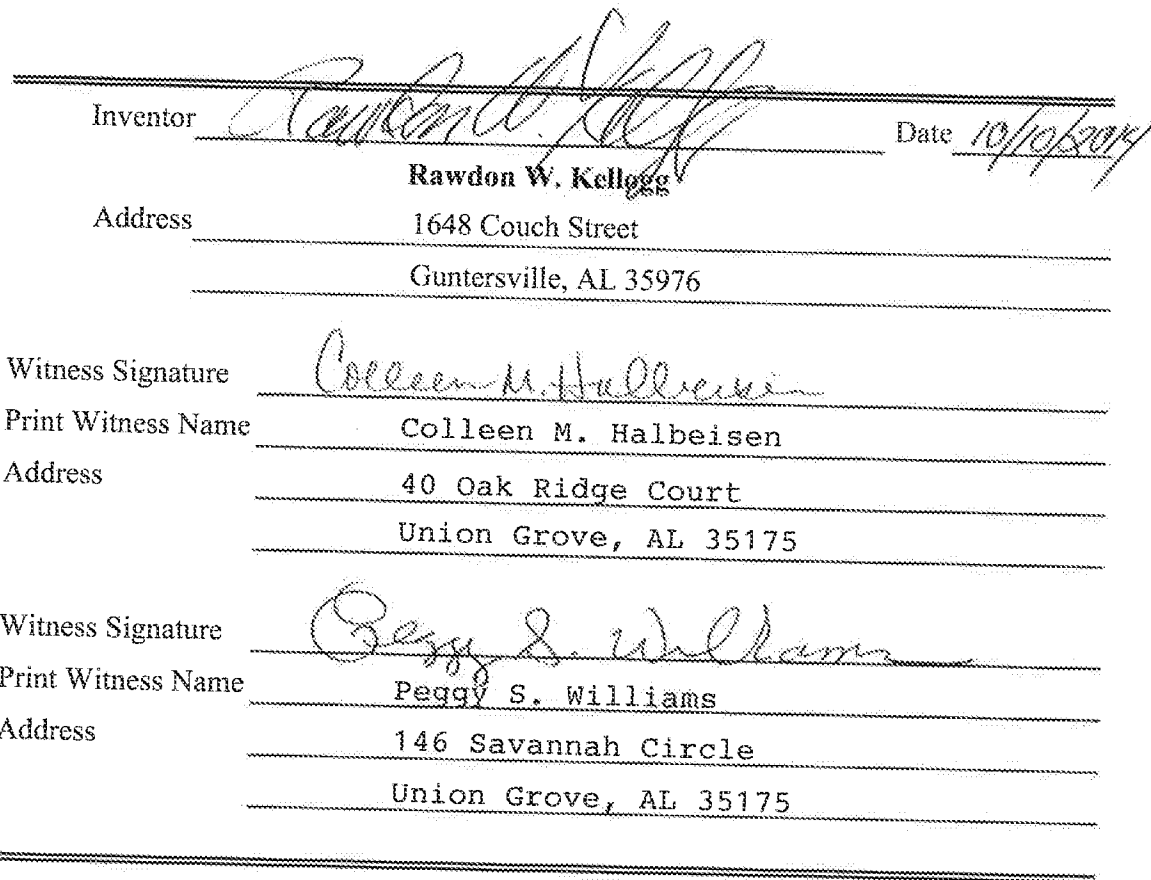 Inventor Rawdon W. Kellogg Date 10/10/2014
Rawdon W. Kellogg
Address 1648 Couch Street
Guntersville, AL 35976
Witness Signature Colleen M. Halbeisen
Print Witness Name Colleen M. Halbeisen
Address 40 Oak Ridge Court
Union Grove, AL 35175
Witness Signature Peggy S. Williams
Print Witness Name Peggy S. Williams
Address 146 Savannah Circle
Union Grove, AL 35175